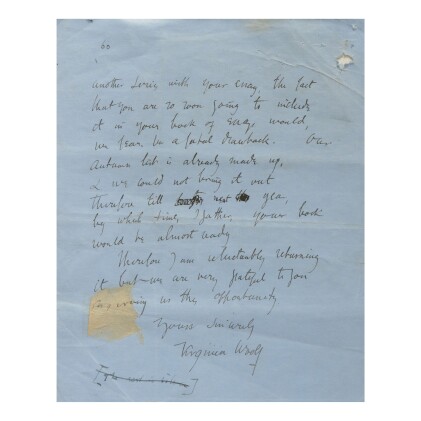 60
another series with your essay, the fact
that you are so soon going to include
it in your book of essays would,
we fear, be a fatal drawback. Our
Autumn list is already made up,
& we could not bring it out
therefore till next year,
by which time, I gather, your book
would be almost ready
Therefore I am reluctantly returning
it but we are very grateful to you
for giving us the opportunity
Yours sincerely
Virginia Woolf